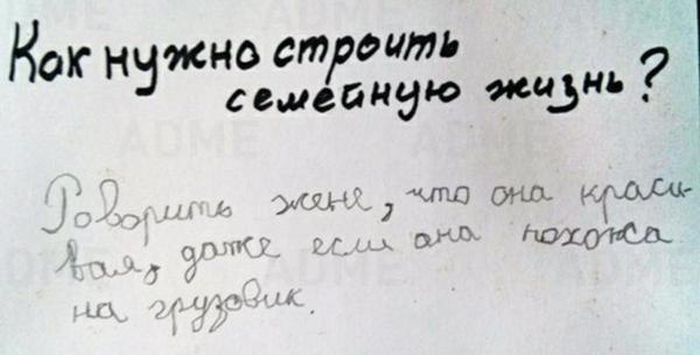 Как нужно строить
семейную жизнь?
Говорить жене, что она краси-
вая, даже если она похожа
на грузовик.
ADME
ADME
ADME
ADME
ADME
ADME
ADME